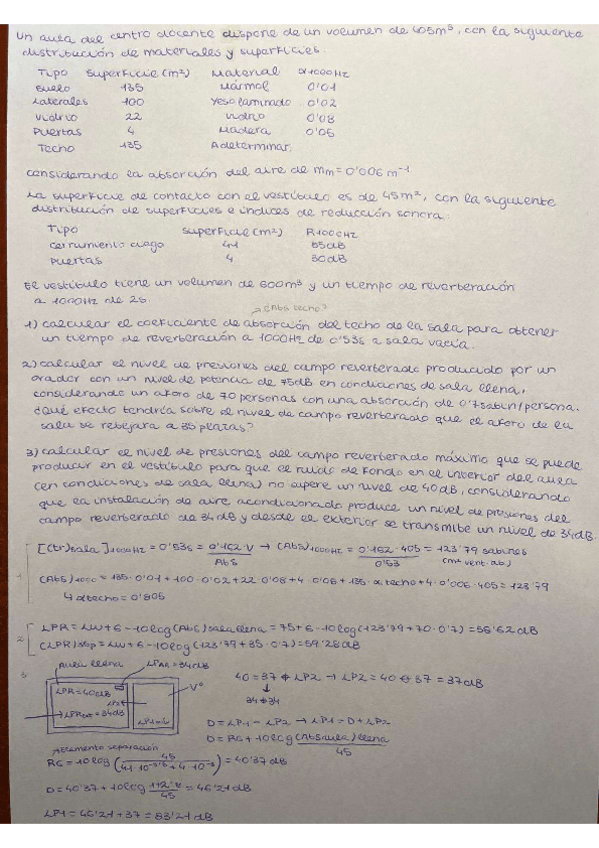 Un aula del centro docente dispone de un volumen de 405m³, con la siguiente
distribución de materiales y superficies.
Tipo Superficie (m²) Material α1000Hz
Suelo 135 Mármol 0'01
Laterales 100 Yeso laminado 0'02
Vidrio 22 Vidrio 0'08
Puertas 4 Madera 0'05
Techo 135 A determinar
Considerando la absorción del aire de mm=0'006 m⁻¹
La superficie de contacto con el vestíbulo es de 45m², con la siguiente
distribución de superficies e índices de reducción sonora:
Tipo Superficie (m²) R1000Hz
Cerramiento ciego 41 55dB
Puertas 4 30dB
El vestíbulo tiene un volumen de 600m³ y un tiempo de reverberación
a 1000Hz de 2s.
¿Abs techo?
1) Calcular el coeficiente de absorción del techo de la sala para obtener
un tiempo de reverberación a 1000Hz de 0'53s a sala vacía.
2) Calcular el nivel de presiones del campo reverberado producido por un
orador con un nivel de potencia de 75dB en condiciones de sala llena,
considerando un aforo de 70 personas con una absorción de 0'7sabin/persona.
¿Qué efecto tendría sobre el nivel de campo reverberado que el aforo de la
sala se rebajara a 35 plazas?
3) Calcular el nivel de presiones del campo reverberado máximo que se puede
producir en el vestíbulo para que el ruido de fondo en el interior del aula
(en condiciones de sala llena) no supere un nivel de 40dB, considerando
que la instalación de aire acondicionado produce un nivel de presiones del
campo reverberado de 34dB y desde el exterior se transmite un nivel de 34dB.
1 [(tr)sala]1000Hz = 0'53s = 0'162·V / Abs → (Abs)1000Hz = 0'162·405 / 0'53 = 123'79 sabines
(m² vent. ab)
(Abs)1000 = 135·0'01+100·0'02+22·0'08+4·0'05+135·αtecho+4·0'006·405 = 123'79
↳ αtecho = 0'805
2 LPR = LW+6-10log(Abs)sala llena = 75+6-10log(123'79+70·0'7) = 58'62dB
(LPR)35p = LW+6-10log(123'79+35·0'7) = 59'28dB
3 Aula llena LPAA=34dB
LPR=40dB V°
LPRext=34dB LP1=¿?
40 = 37 ⊕ LP2 → LP2 = 40 ⊖ 37 = 37dB
34⊕34
D = LP1 - LP2 → LP1 = D + LP2
D = RG + 10log (Abs aula) llena / 45
Aislamiento separación
RG = 10log ( 45 / 41·10⁻⁵'⁵ + 4·10⁻³ ) = 40'37dB
LP1 = 46'21+37 = 83'21dB